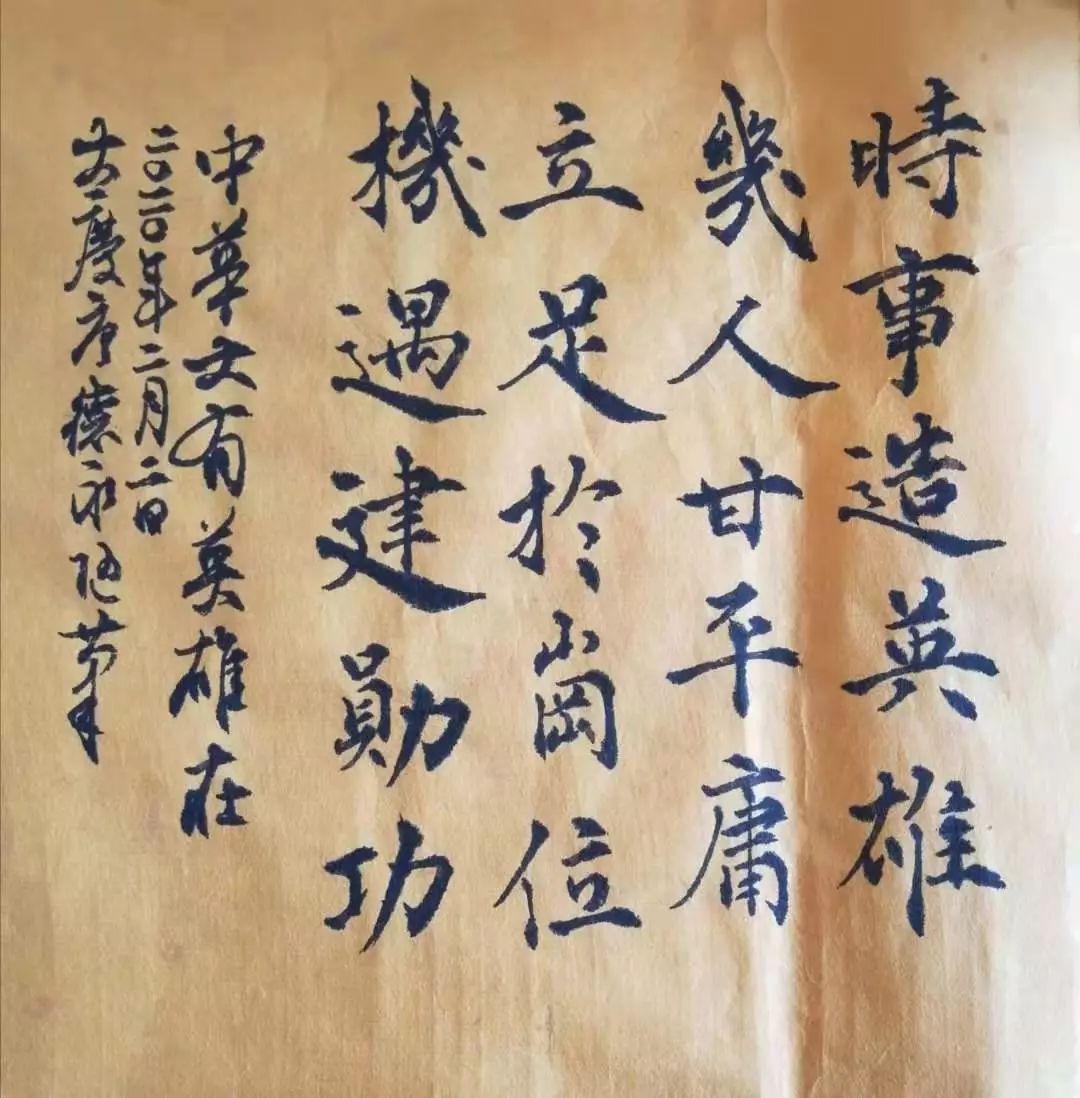 時事造英雄
幾人甘平庸
立足於崗位
機遇建勛功
中華文有英雄在
二〇二〇年二月二日
慶 德永 筆